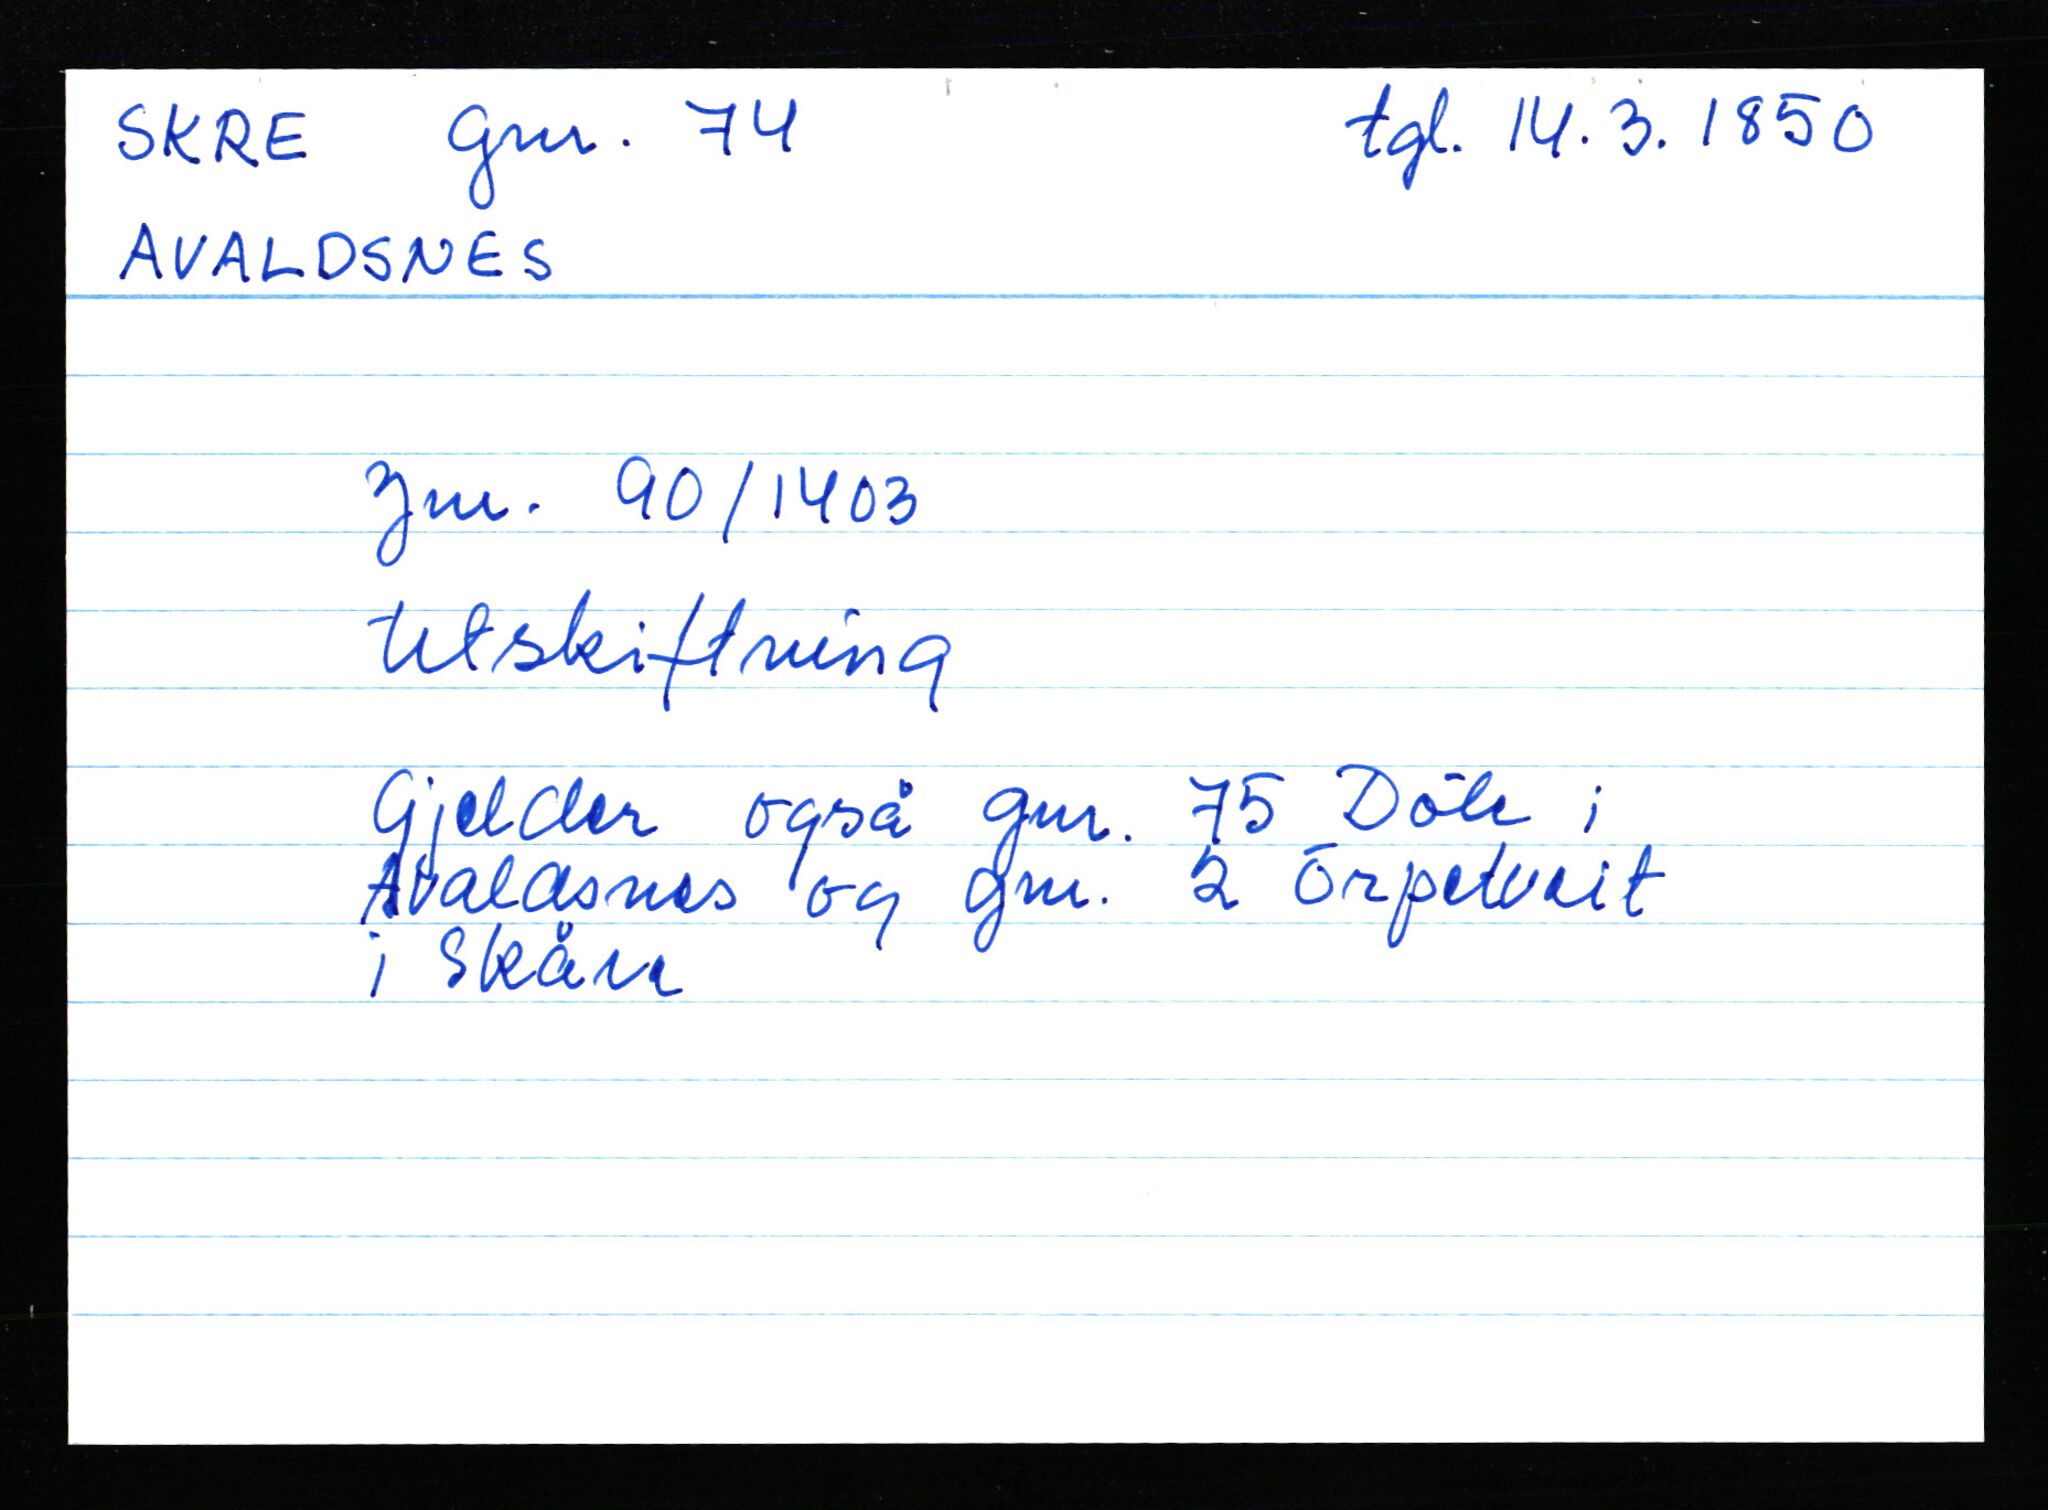 SKRE gnr. 74 tgl. 14.3.1850
AVALDSNES
Jnr. 90/1403
Utskiftning
Gjelder også gnr. 75 Döle i
Avaldsnes og gnr. 2 Örpetveit
i Skåre